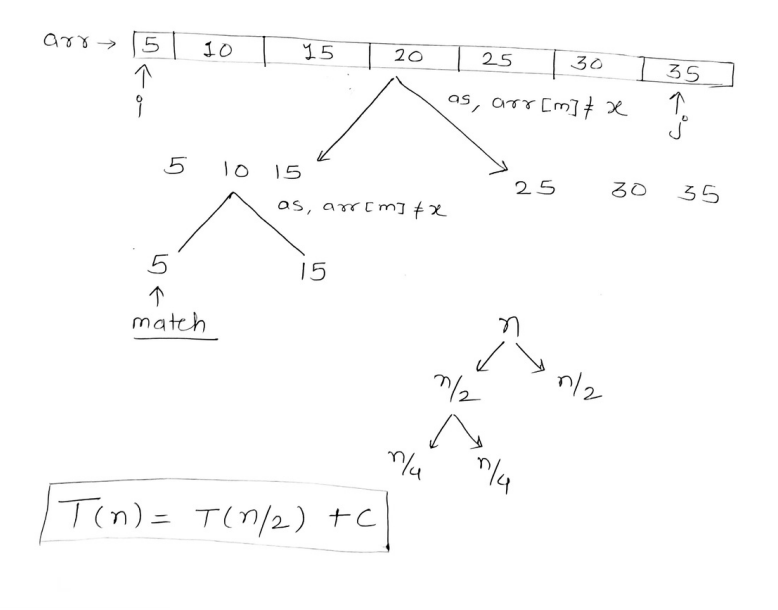 arr → 5 10 15 20 25 30 35
i
as, arr[m] ≠ x
j
5 10 15
25 30 35
as, arr[m] ≠ x
5 15
match
n
n/2 n/2
n/4 n/4
T(n) = T(n/2) + C